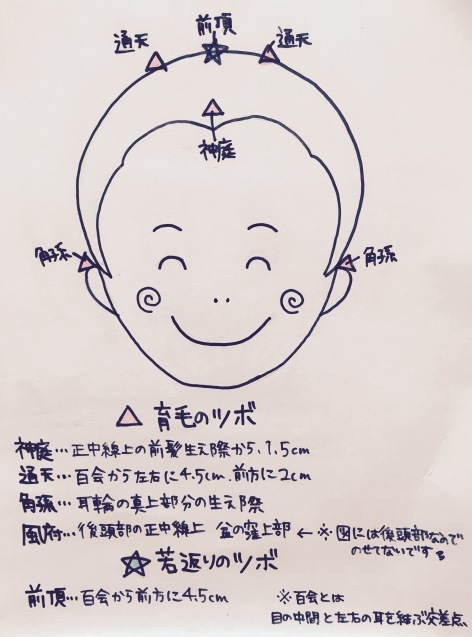 前頂
通天 通天
神庭
角孫 角孫
△ 育毛のツボ
神庭…正中線上の前髪生え際から、1.5cm
通天…百会から左右に4.5cm.前方に2cm
角孫…耳輪の真上部分の生え際
風府…後頭部の正中線上 盆の窪上部 ← ※図には後頭部なので
のせてないです。
☆若返りのツボ
前頂…百会から前方に4.5cm ※百会とは
目の中間と左右の耳を結ぶ交差点